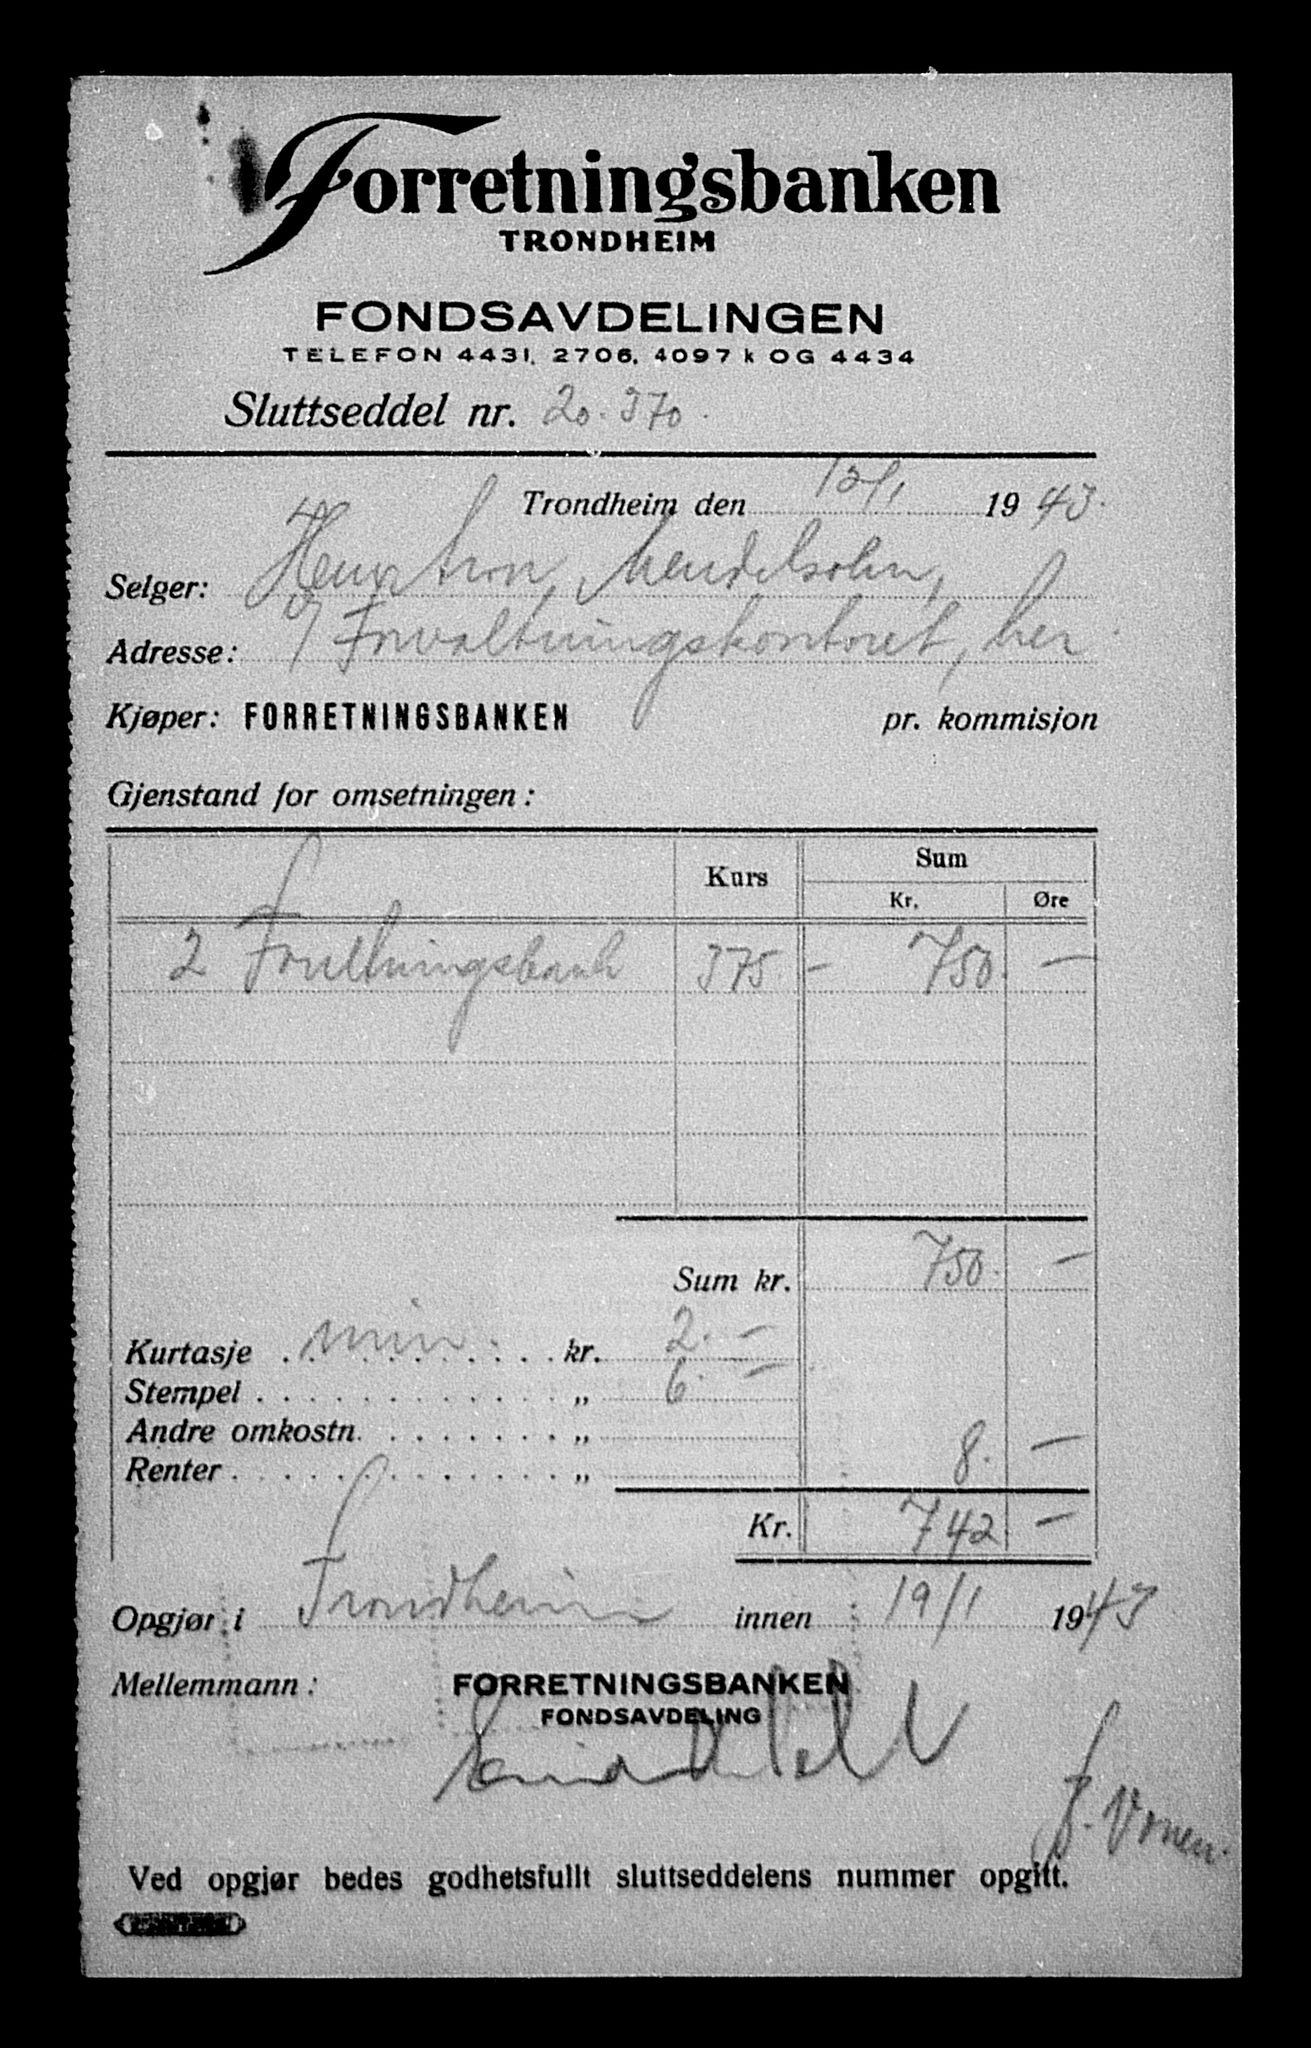 Forretningsbanken
TRONDHEIM
FONDSAVDELINGEN
TELEFON 4431, 2706, 4097 k OG 4434
Sluttseddel nr. 20.370.
Trondheim den 12/1 1943.
Selger: Mendelsohn,
Adresse: Forvaltningskontoret, her
Kjøper: FORRETNINGSBANKEN pr. kommisjon
Gjenstand for omsetningen:
Kurs Sum
Kr. Øre
2 Forretningsbank 375.- 750. -
Sum kr. 750. -
Kurtasje min. kr. 2. -
Stempel „ 6. -
Andre omkostn. „
Renter „ 8. -
Kr. 742 -
Opgjør i Trondheim innen 19/1 1943
Mellemmann: FORRETNINGSBANKEN
FONDSAVDELING
Ved opgjør bedes godhetsfullt sluttseddelens nummer opgitt.